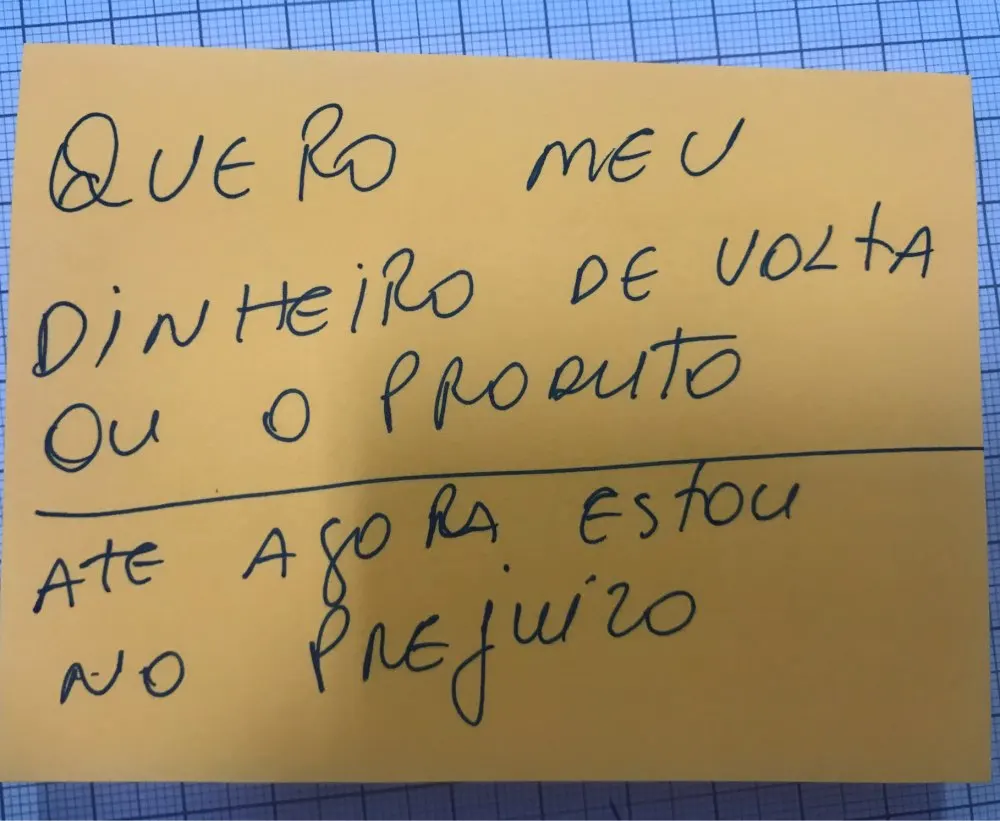 QUERO MEU
DiNHEiRO DE VOLtA
OU O PRODUTO
ATE AGORA EStOU
NO PREjUiZO